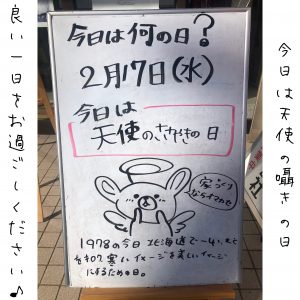 今日は天使の囁きの日
今日は何の日?
2月17日(水)
今日は
天使のささやきの日
家づくり
ならイマガワ
1978の今日 北海道で
寒いイメージを楽しいイメージ
にするための日。
良い一日をお過ごしください♪